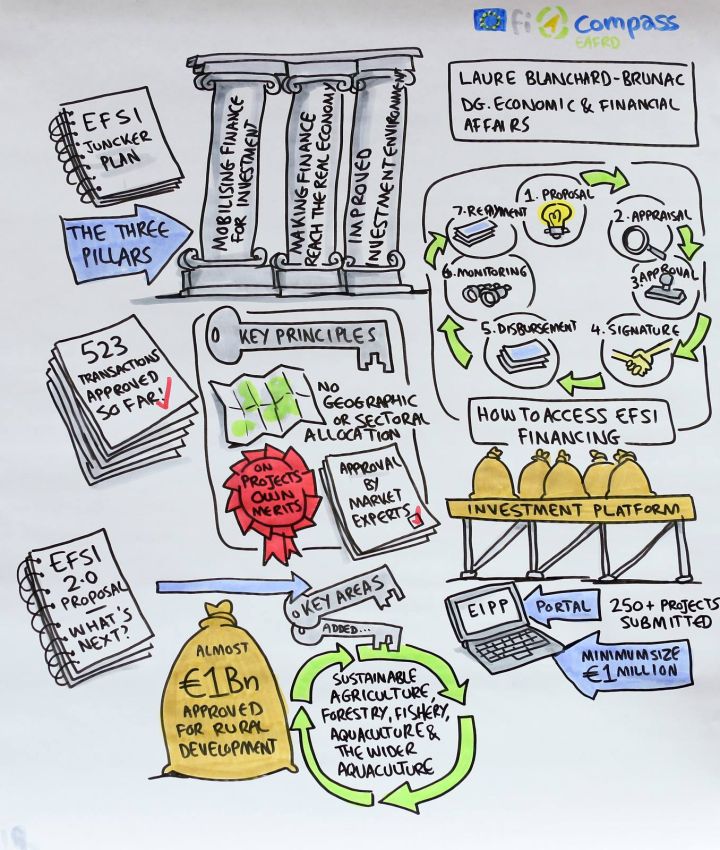 fi compass
EAFRD
LAURE BLANCHARD-BRUNAC
DG. ECONOMIC & FINANCIAL
AFFAIRS
EFSI
JUNCKER
PLAN
THE THREE
PILLARS
MOBILISING FINANCE
FOR INVESTMENT
MAKING FINANCE
REACH THE REAL ECONOMY
IMPROVED
INVESTMENT ENVIRONMENT
1. PROPOSAL
2. APPRAISAL
3. APPROVAL
4. SIGNATURE
5. DISBURSEMENT
6. MONITORING
7. REPAYMENT
HOW TO ACCESS EFSI
FINANCING
523
TRANSACTIONS
APPROVED
SO FAR!
KEY PRINCIPLES
NO
GEOGRAPHIC
OR SECTORAL
ALLOCATION
ON
PROJECTS
OWN
MERITS
APPROVAL
BY
MARKET
EXPERTS
INVESTMENT PLATFORM
EFSI
2.0
PROPOSAL
—
WHAT'S
NEXT?
KEY AREAS
ADDED...
ALMOST
€1Bn
APPROVED
FOR RURAL
DEVELOPMENT
SUSTAINABLE
AGRICULTURE,
FORESTRY, FISHERY,
AQUACULTURE &
THE WIDER
AQUACULTURE
EIPP
PORTAL
250+ PROJECTS
SUBMITTED
MINIMUM SIZE
€1 MILLION